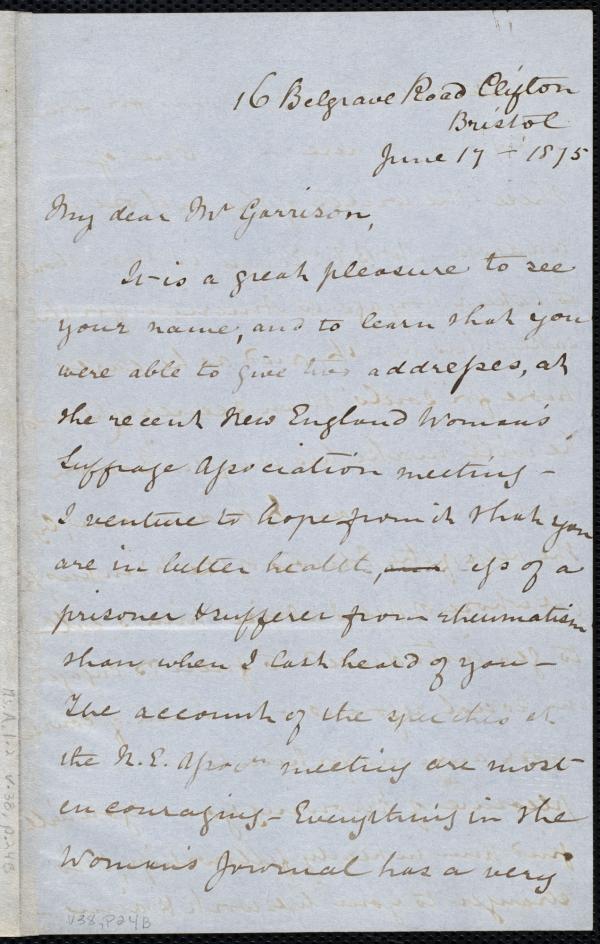 16 Belgrave Road Clifton
Bristol
June 17 - 1875
My dear Mr Garrison,
It is a great pleasure to see
your name, and to learn that you
were able to give two addresses, at
the recent New England Woman's
Suffrage Association meeting -
I venture to hope from it that you
are in better health, less of a
prisoner & sufferer from rheumatism
than when I last heard of you -
The account of the speeches at
the N.E. Assocn meeting are most
encouraging - Everything in the
Woman's Journal has a very
V38, P24B